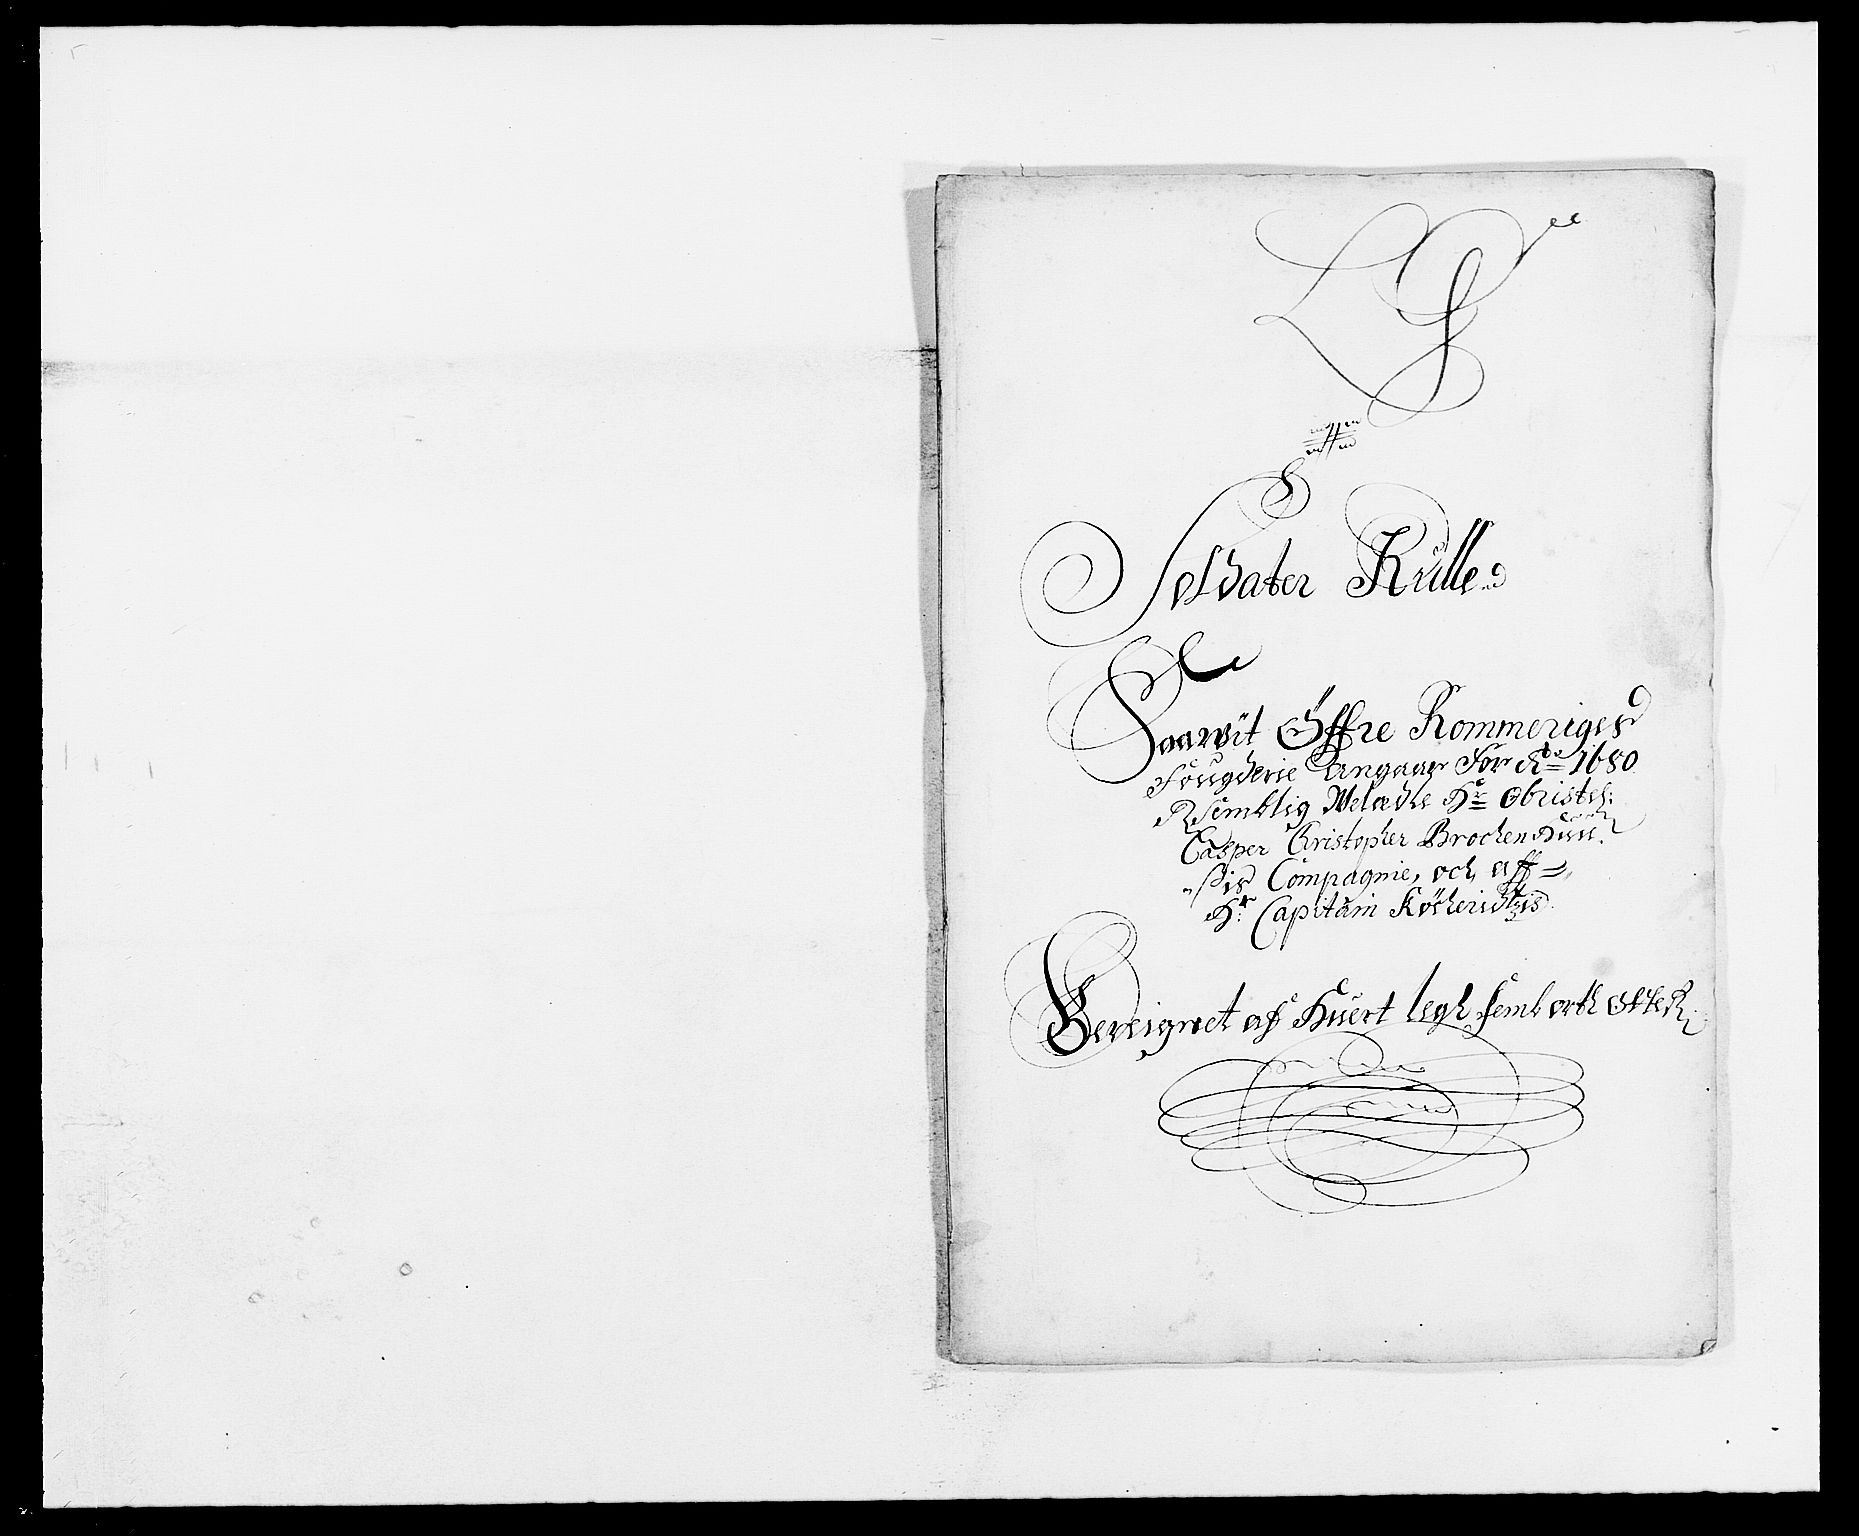 Soldater Rulle
Saawit Öffre Rommeriges
Fougderie Angaar For Ao 1680
Nemblig Welædle Hr Obriste
Casper Christopher Brochenhuu
sis Compagnie, och aff
Hr Capitain Köcheridtzis
Bereignet af Huert legh semb orth